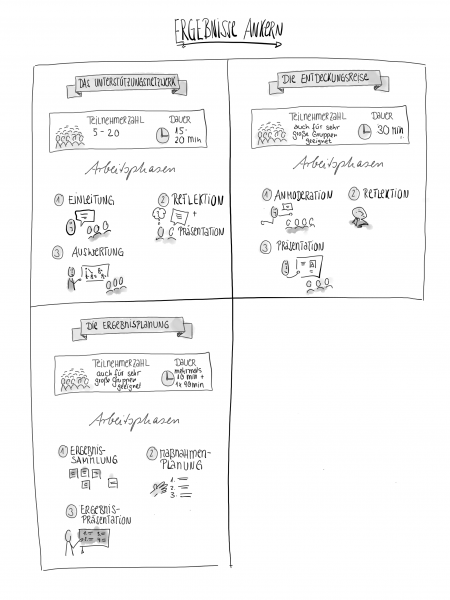 ERGEBNISSE ANKERN
DAS UNTERSTÜTZUNGSNETZWERK
TEILNEHMERZAHL
5-20
DAUER
15-
20 min
Arbeitsphasen
1 EINLEITUNG
2 REFLEKTION
+
PRÄSENTATION
3 AUSWERTUNG
DIE ENTDECKUNGSREISE
TEILNEHMERZAHL
auch für sehr
große Gruppen
geeignet
DAUER
30 min
Arbeitsphasen
1 ANMODERATION
2 REFLEKTION
3 PRÄSENTATION
DIE ERGEBNISPLANUNG
TEILNEHMERZAHL
auch für sehr
große Gruppen
geeignet
DAUER
mehrmals
10 min +
1x 90min
Arbeitsphasen
1 ERGEBNIS-
SAMMLUNG
2 MAßNAHMEN-
PLANUNG
1.
2.
3.
3 ERGEBNIS-
PRÄSENTATION